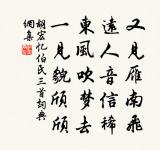 又見雁南飛
遠人音信稀
東風吹夢去
一見貌頎頎
胡宏憶伯氏三首詞典
網集